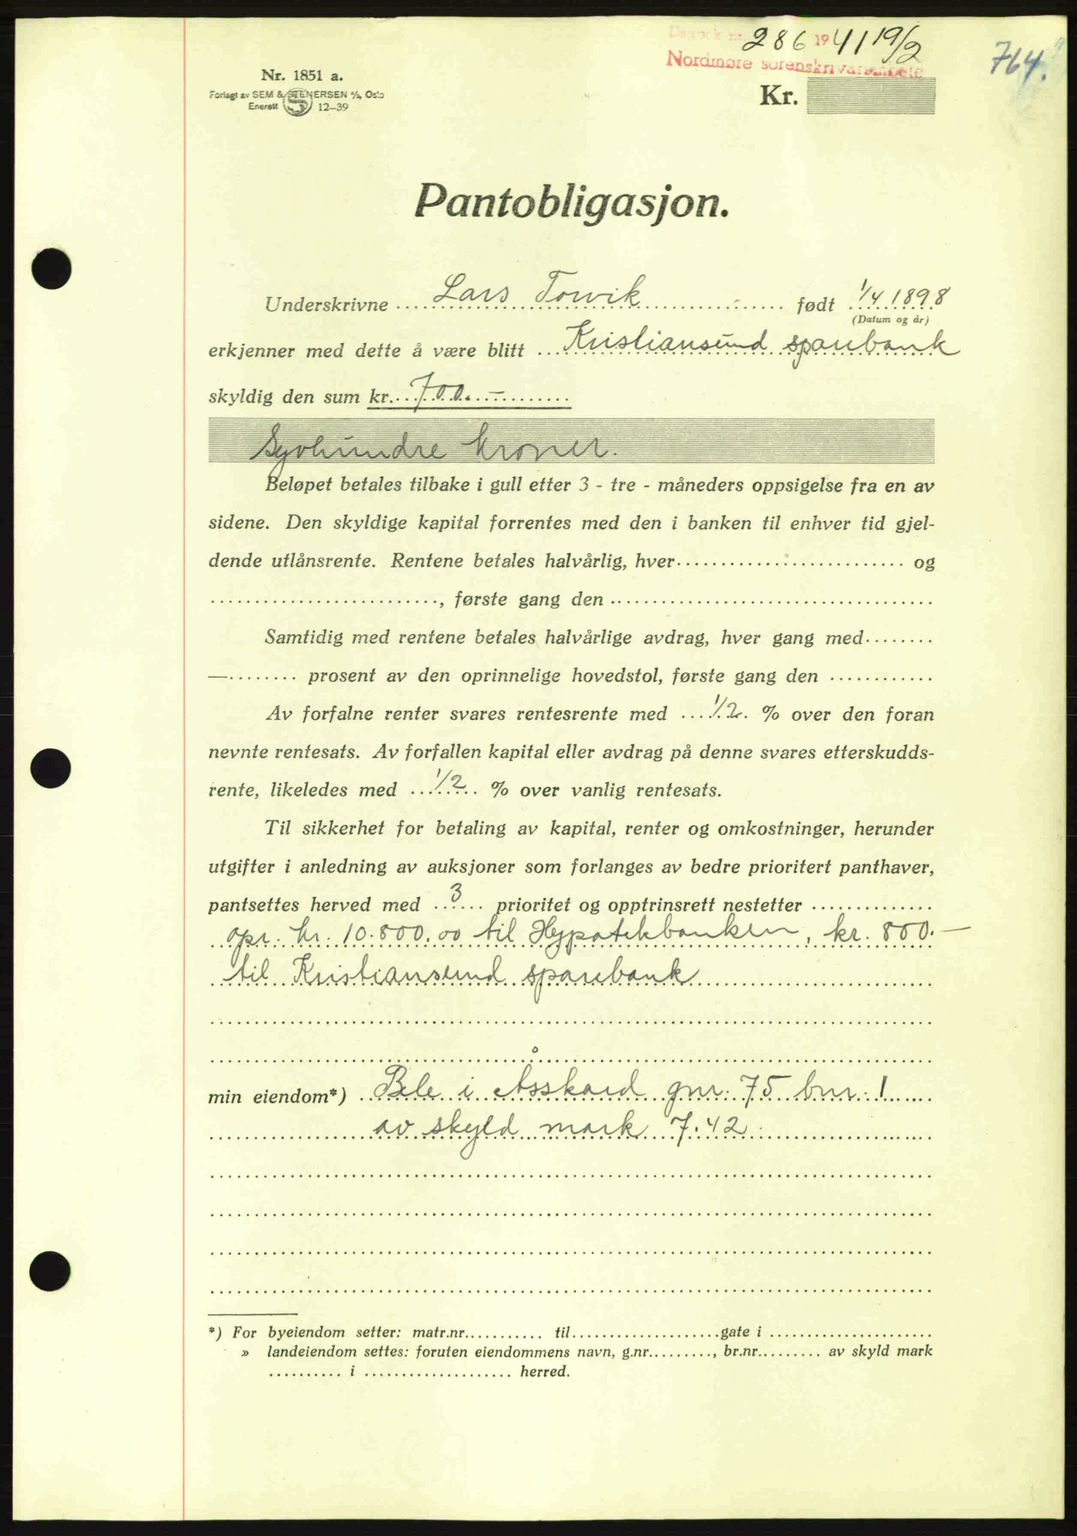 Dagbok nr. 286 1941 19/2
Nordmøre sorenskriverembete
764.
Nr. 1851 a.
Forlagt av SEM & STENERSEN A/S, Oslo
Enerett 12-39
Kr.
Pantobligasjon.
Underskrivne Lars Torvik født 1/4 1898
(Datum og år)
erkjenner med dette å være blitt Kristiansund sparebank
skyldig den sum kr. 700.-
Syvhundre kroner.
Beløpet betales tilbake i gull etter 3 - tre - måneders oppsigelse fra en av
sidene. Den skyldige kapital forrentes med den i banken til enhver tid gjel-
dende utlånsrente. Rentene betales halvårlig, hver .......... og
.........., første gang den ..........
Samtidig med rentene betales halvårlige avdrag, hver gang med........
—........ prosent av den oprinnelige hovedstol, første gang den ..........
Av forfalne renter svares rentesrente med 1/2 % over den foran
nevnte rentesats. Av forfallen kapital eller avdrag på denne svares etterskudds-
rente, likeledes med 1/2 % over vanlig rentesats.
Til sikkerhet for betaling av kapital, renter og omkostninger, herunder
utgifter i anledning av auksjoner som forlanges av bedre prioritert panthaver,
pantsettes herved med 3 prioritet og opptrinsrett nestetter
opr. kr. 10.800,00 til Hypotekbanken, kr. 800.—
til Kristiansund sparebank
min eiendom*) Bele i Åsskard gnr. 75 bnr. 1
av skyld mark 7.42
*) For byeiendom setter: matr.nr........... til....................gate i ......................
» landeiendom settes: foruten eiendommens navn, g.nr........., br.nr......... av skyld mark
.......... i .................... herred.